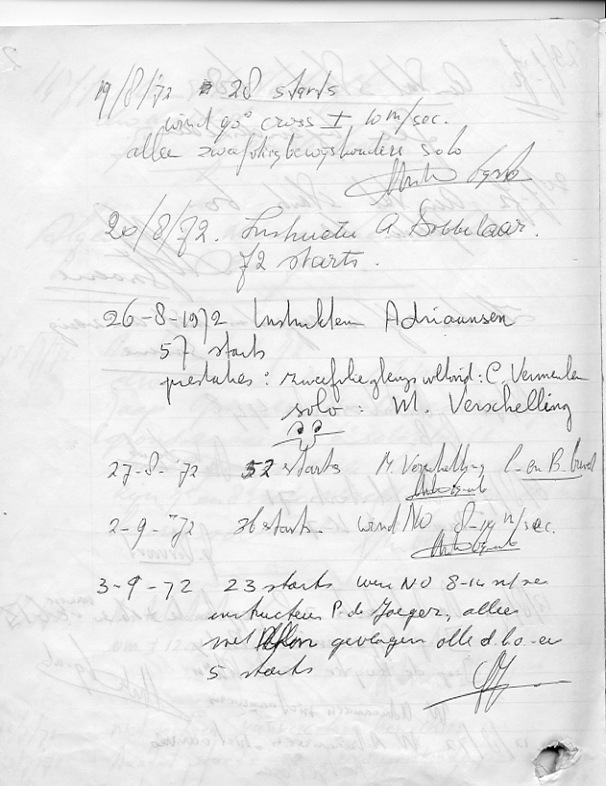 19/8/'72 28 starts
wind 90° cross ± 10 m/sec.
alleen zweefvliegbewijshouders solo
20/8/72. Instructeur A Dobbelaar.
72 starts.
26-8-1972 Instrukteur Adriaansen
57 starts
prestaties: zweefvlieg voltooid: C. Vermeulen
solo: M. Verschelling
27-8-'72 52 starts M Verschelling C en B.
2-9-'72 26 starts. wind NO 8-14 m/sec.
3-9-72 23 starts wind NO 8-14 m/sec
instructeur P. de Jaeger, alleen
met gevlogen
5 starts